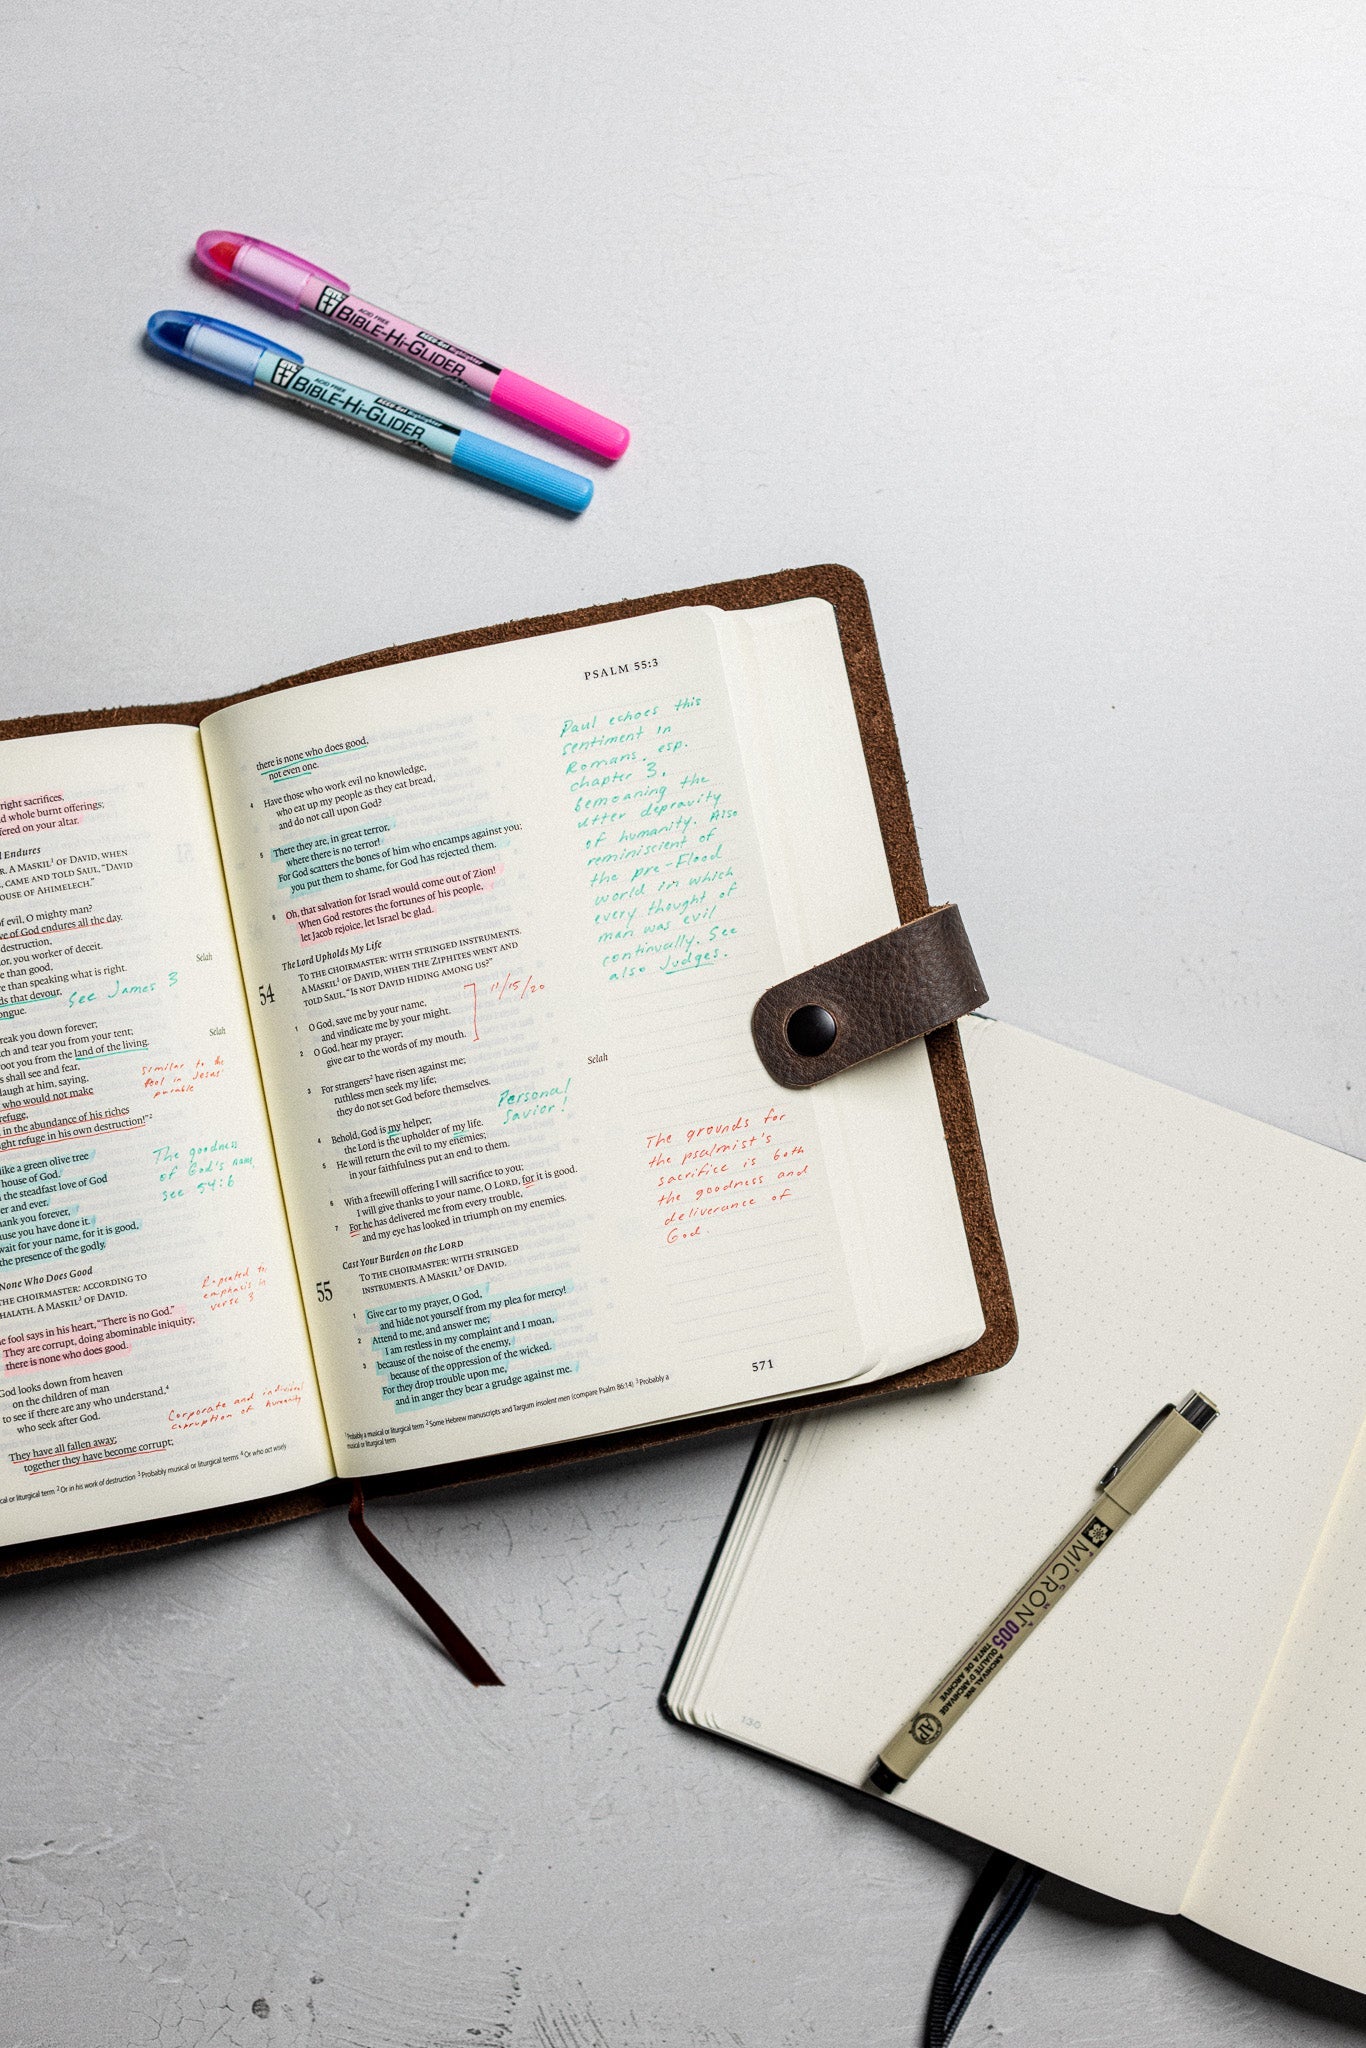 ACID FREE
BIBLE-HI-GLIDER
ACID FREE
BIBLE-HI-GLIDER
right sacrifices,
d whole burnt offerings;
fered on your altar.
l Endures
R. A MASKIL¹ OF DAVID, WHEN
, CAME AND TOLD SAUL, “DAVID
OUSE OF AHIMELECH.”
of evil, O mighty man?
ve of God endures all the day.
destruction,
or, you worker of deceit.
re than good,
re than speaking what is right. Selah
ds that devour,
ongue.
See James 3
reak you down forever;
tch and tear you from your tent;
root you from the land of the living. Selah
s shall see and fear,
laugh at him, saying,
who would not make
refuge,
in the abundance of his riches
ght refuge in his own destruction!”²
similar to the
fool in Jesus'
parable
like a green olive tree
house of God.
the steadfast love of God
er and ever.
hank you forever,
ause you have done it.
wait for your name, for it is good,
the presence of the godly.
The goodness
of God's name,
see 54:6
None Who Does Good
THE CHOIRMASTER: ACCORDING TO
HALATH. A MASKIL³ OF DAVID.
e fool says in his heart, “There is no God.”
They are corrupt, doing abominable iniquity;
there is none who does good.
Repeated for
emphasis in
verse 3
God looks down from heaven
on the children of man
to see if there are any who understand,⁴
who seek after God.
They have all fallen away;
together they have become corrupt;
Corporate and individual
corruption of humanity
cal or liturgical term ²Or in his work of destruction ³Probably musical or liturgical terms ⁴Or who act wisely
PSALM 55:3
there is none who does good,
not even one.
4 Have those who work evil no knowledge,
who eat up my people as they eat bread,
and do not call upon God?
5 There they are, in great terror,
where there is no terror!
For God scatters the bones of him who encamps against you;
you put them to shame, for God has rejected them.
6 Oh, that salvation for Israel would come out of Zion!
When God restores the fortunes of his people,
let Jacob rejoice, let Israel be glad.
Paul echoes this
sentiment in
Romans, esp.
chapter 3,
bemoaning the
utter depravity
of humanity. Also
reminiscent of
the pre-Flood
world in which
every thought of
man was evil
continually. See
also Judges.
The Lord Upholds My Life
54 TO THE CHOIRMASTER: WITH STRINGED INSTRUMENTS.
A MASKIL¹ OF DAVID, WHEN THE ZIPHITES WENT AND
TOLD SAUL, “IS NOT DAVID HIDING AMONG US?”
1 O God, save me by your name,
and vindicate me by your might.
2 O God, hear my prayer;
give ear to the words of my mouth.
11/15/20
3 For strangers² have risen against me;
ruthless men seek my life;
they do not set God before themselves. Selah
4 Behold, God is my helper;
the Lord is the upholder of my life.
5 He will return the evil to my enemies;
in your faithfulness put an end to them.
Personal
Savior!
6 With a freewill offering I will sacrifice to you;
I will give thanks to your name, O LORD, for it is good.
7 For he has delivered me from every trouble,
and my eye has looked in triumph on my enemies.
The grounds for
the psalmist's
sacrifice is both
the goodness and
deliverance of
God.
Cast Your Burden on the LORD
55 TO THE CHOIRMASTER: WITH STRINGED
INSTRUMENTS. A MASKIL³ OF DAVID.
1 Give ear to my prayer, O God,
and hide not yourself from my plea for mercy!
2 Attend to me, and answer me;
I am restless in my complaint and I moan,
3 because of the noise of the enemy,
because of the oppression of the wicked.
For they drop trouble upon me,
and in anger they bear a grudge against me.
571
¹Probably a musical or liturgical term ²Some Hebrew manuscripts and Targum insolent men (compare Psalm 86:14) ³Probably a
musical or liturgical term
130
MICRON 005
ARCHIVAL INK
QUALITÉ D'ARCHIVAGE
TINTA DE ARCHIVE
AP